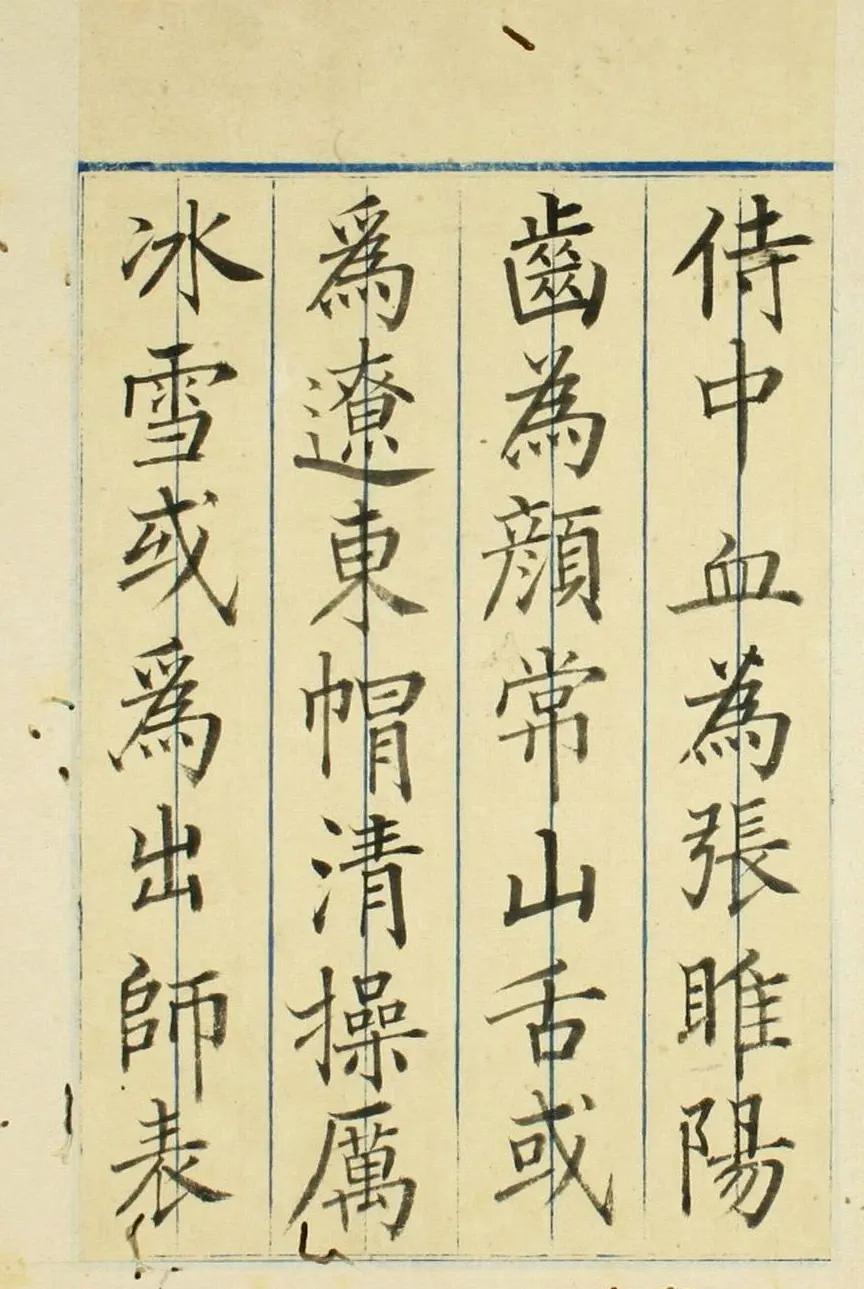 侍中血為張睢陽
齒為顔常山舌或
爲遼東帽清操厲
冰雪或爲出師表